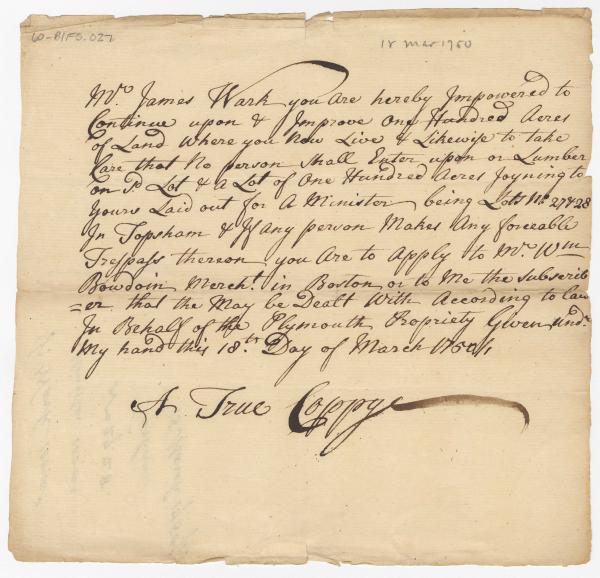 60-BIFO.027
18 Mar 1750
Mr. James Wark you Are hereby Impowered to
Continue upon & Improve One Hundred Acres
of Land Where you Now Live & Likewise to take
Care that No person Shall Enter upon or Lumber
on sd. Lot & a Lot of One Hundred Acres Joyning to
Yours Laid out for A Minister being Lots No. 27 & 28
In Topsham & If any person Makes Any forceable
Trespass thereon you Are to Apply to Mr. Wm
Bowdoin Mercht. in Boston or to Me the subscrib
=er that the May be Dealt With According to law
In Behalf of the Plymouth Propriety Given undr.
My hand this 18th. Day of March 1750/1
A True Coppye